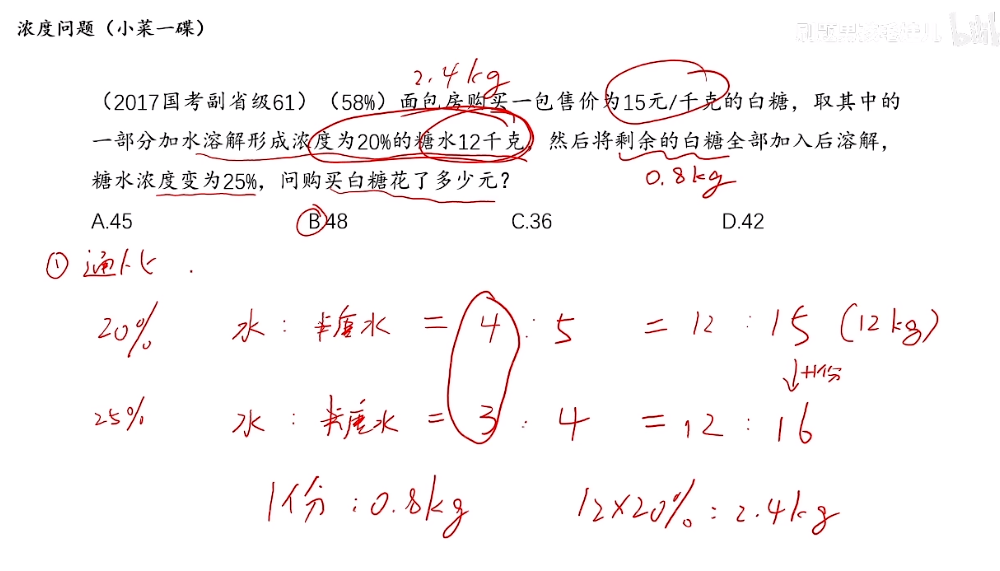 浓度问题（小菜一碟）
2.4kg
（2017国考副省级61）（58%）面包房购买一包售价为15元/千克的白糖，取其中的
一部分加水溶解形成浓度为20%的糖水12千克，然后将剩余的白糖全部加入后溶解，
糖水浓度变为25%，问购买白糖花了多少元？
0.8kg
A.45 B.48 C.36 D.42
① 通比
20% 水：糖水 = 4 : 5 = 12 : 15 (12kg)
↓+1份
25% 水：糖水 = 3 : 4 = 12 : 16
1份：0.8kg 12×20%：2.4kg